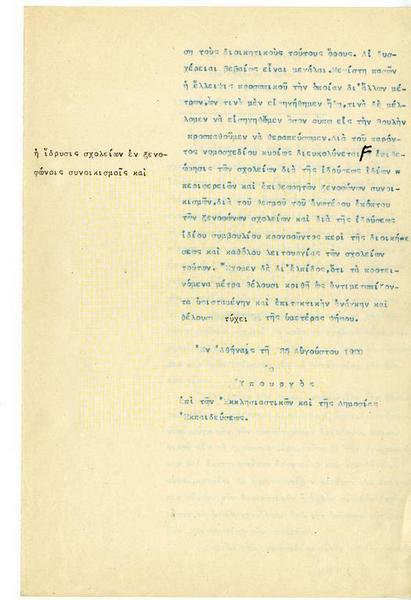 ση τοὺς διοικητικοὺς τούτους ὅρους. Αἱ δυσ-
χέρειαι βεβαίως εἶναι μεγάλαι. Μεγίστη πασῶν
ἡ ἔλλειψις προσωπικοῦ τὴν ὁποίαν δι' ἄλλων μέ-
τρων, ὧν τινὰ μὲν εἰσηγήθημεν ἤδη, τινὰ δὲ μέλ-
λομεν νὰ εἰσηγηθῶμεν ὅσον οὔπω εἰς τὴν Βουλὴν
προσπαθοῦμεν νὰ θεραπεύσωμεν. Διὰ τοῦ παρόν-
τος νομοσχεδίου κυρίως διευκολύνεται
ἡ ἵδρυσις σχολείων ἐν ξενο-
φώνοις συνοικισμοῖς καὶ
ἐπιθε-
ώρησις τῶν σχολείων διὰ τῆς ἱδρύσεως ἰδίων
περιφερειῶν καὶ ἐπιθεωρητῶν ξενοφώνων συνοι-
κισμῶν, διὰ τοῦ θεσμοῦ τοῦ ἀνωτέρου ἐπόπτου
τῶν ξενοφώνων σχολείων καὶ διὰ τῆς ἱδρύσεως
ἰδίου συμβουλίου προνοοῦντος περὶ τῆς διοική-
σεως καὶ καθόλου λειτουργίας τῶν σχολείων
τούτων. Ἔχομεν δὲ δι' ἐλπίδος, ὅτι τὰ προτει-
νόμενα μέτρα θέλουσι κριθῆ ὡς ἀντιμετωπίζον-
τα ὑφισταμένην καὶ ἐπιτακτικὴν ἀνάγκην καὶ
θέλουσι τύχει τῆς ὑμετέρας ψήφου.
Ἐν Ἀθήναις τῇ Αὐγούστου
Ὁ
Ὑπουργὸς
ἐπὶ τῶν Ἐκκλησιαστικῶν καὶ τῆς Δημοσίας
Ἐκπαιδεύσεως.